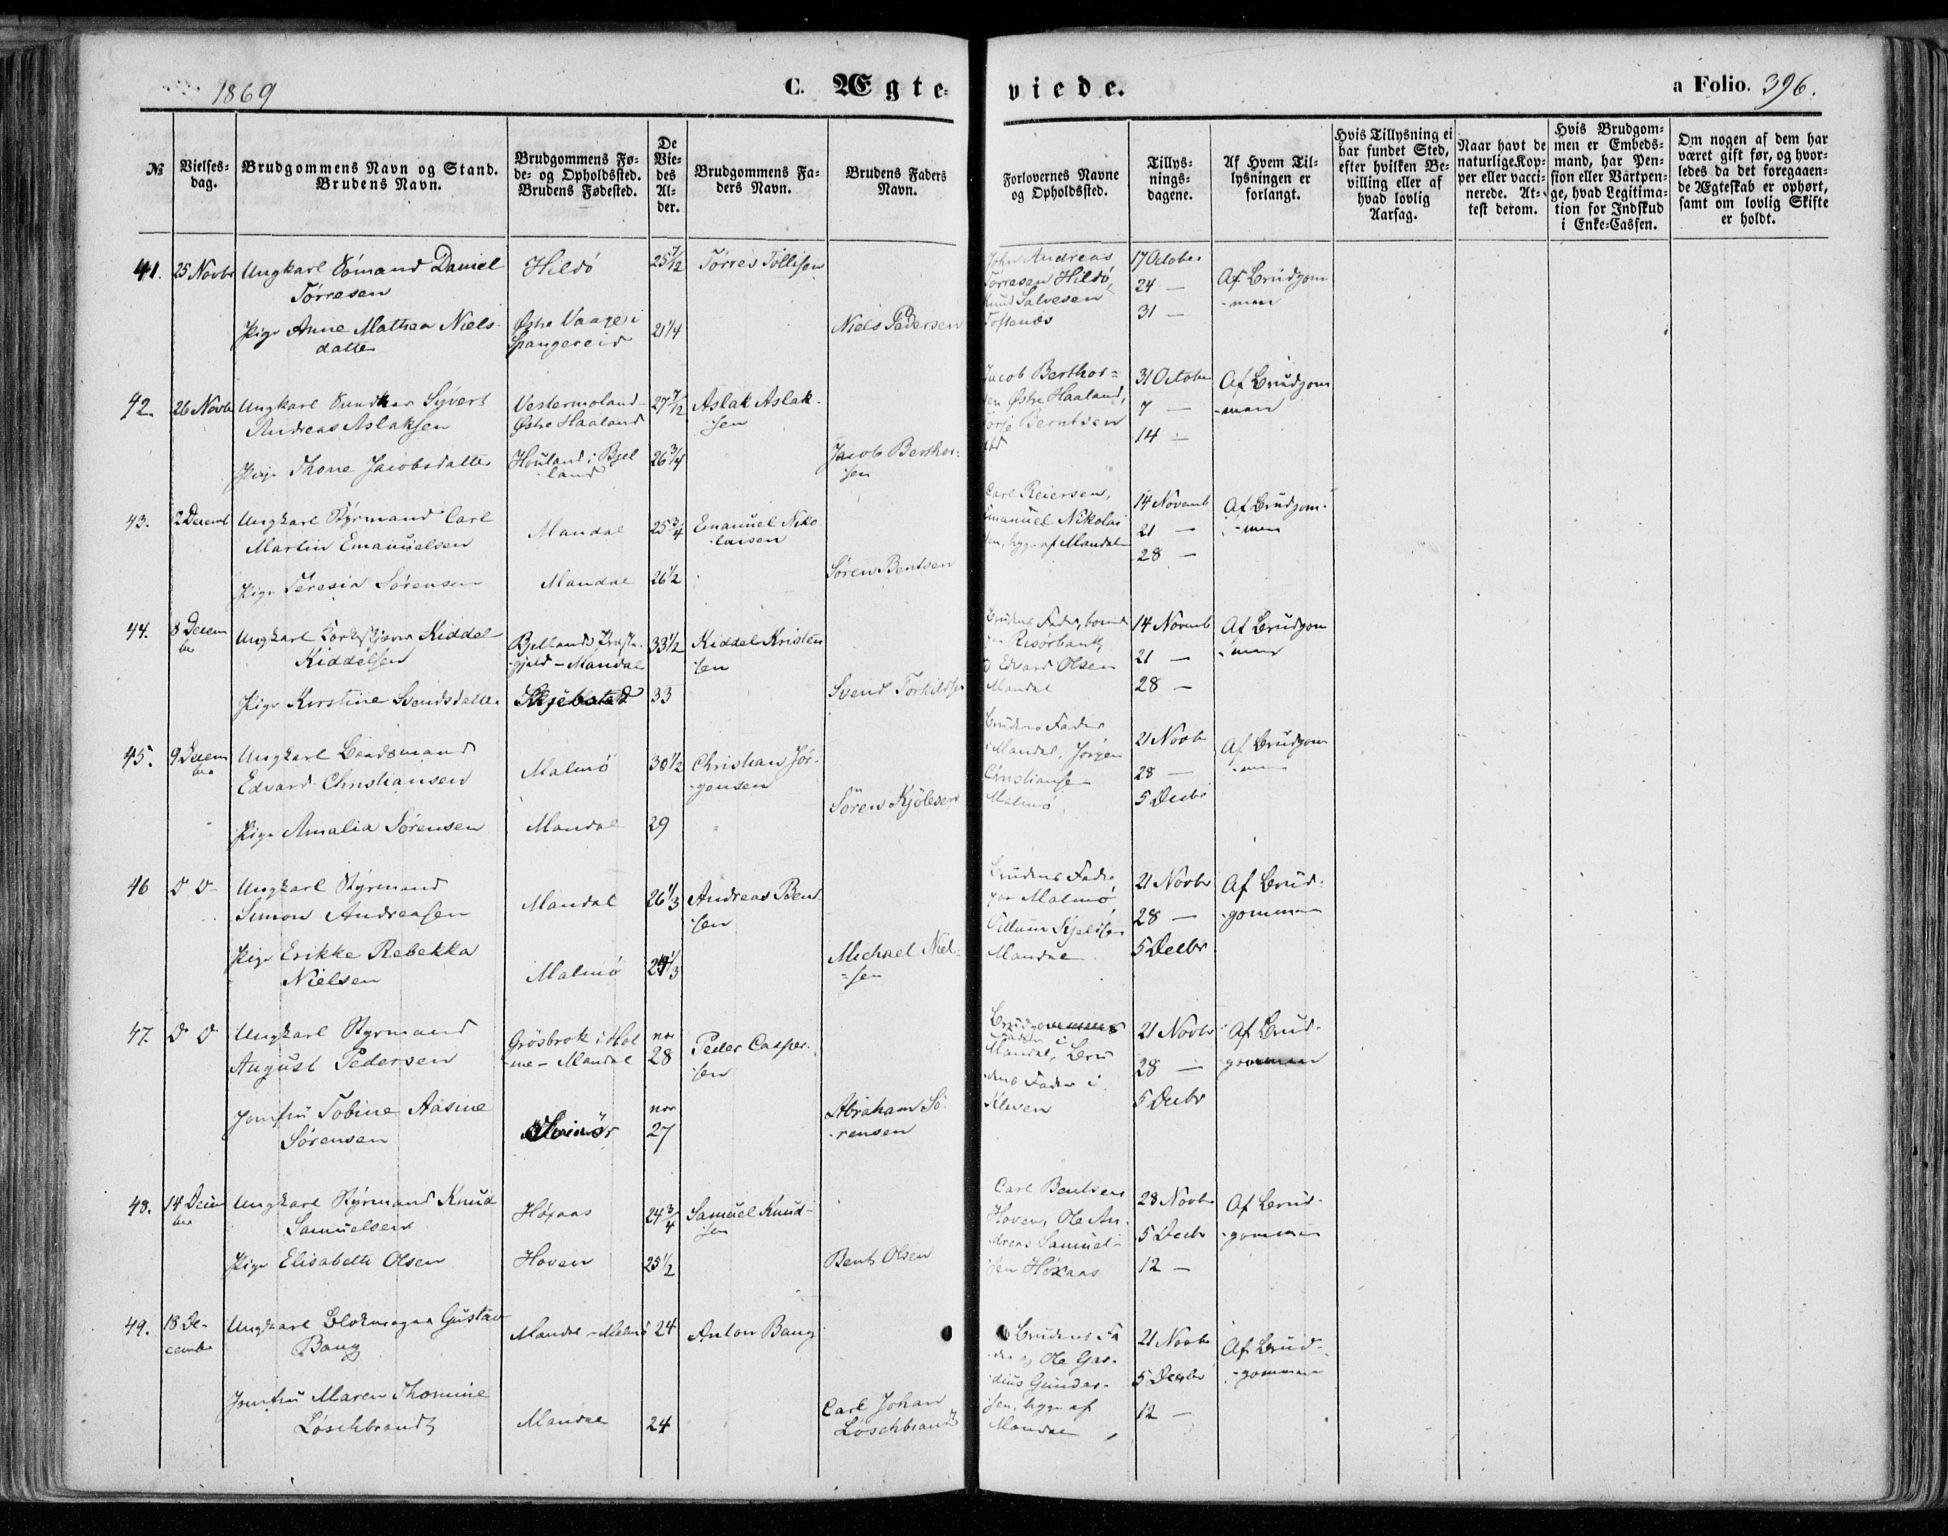 1869
C. Ægte-
viede.
a Folio. 396.
№
Vielses-
dag.
Brudgommens Navn og Stand.
Brudens Navn.
Brudgommens Fø-
de- og Opholdssted.
Brudens Fødested.
De
Vie-
des
Al-
der.
Brudgommens Fa-
ders Navn.
Brudens Faders
Navn.
Forlovernes Navne
og Opholdssted.
Tillys-
nings-
dagene.
Af Hvem Til-
lysningen er
forlangt.
Hvis Tillysning ei
har fundet Sted,
efter hvilken Be-
villing eller af
hvad lovlig
Aarsag.
Naar havt de
naturlige Kop-
per eller vacci-
nerede. At-
test derom.
Hvis Brudgom-
men er Embeds-
mand, har Pen-
sion eller Vartpen-
ge, hvad Legitima-
tion for Indskud
i Enke-Cassen.
Om nogen af dem har
været gift før, og hvor-
ledes da det foregaaen-
de Ægteskab er ophørt,
samt om lovlig Skifte
er holdt.
41. 25 Novbr Ungkarl Sömand Daniel
Törresen
Hildö
25 7/12
Törres Tollisen
John Andreas
Torresen Hildö,
Knud Salvesen
Tostenæs
17 October
24 —
31 —
Af Brudgom
-men
Pige Anne Mathea Niels-
datter
Östre Vaage i
Spangereid
21 1/4
Niels Pedersen
42. 26 Novbr Ungkarl Syvert
Andreas Aslaksen
Vestermoland-
Östre Haaland
27 7/12
Aslak Aslak-
sen
Jacob Berthor=
sen Östre Haaland,
Berntsen
31 October
7 —
14 —
Af Brudgom
-men
Pige Thone Jacobsdatter
Houland i Bjel
land
26 3/4
Jacob Berthor=
sen
43. 2 Decemb Ungkarl Styrmand Carl
Martin Emanuelsen
Mandal
25 3/4
Emanuel Niko
laisen
Carl Reiersen,
Emanuel Nikolai
sen, begge af Mandal
14 Novemb
21 —
28 —
Af Brudgom-
-men
Pige Teresia Sörensen
Mandal
26 1/2
Sören Bentsen
44. 8 Decem
ber
Ungkarl Kiddel
Kiddelsen
Bjellands Præste-
gjeld - Mandal
33 1/2
Kiddel Kristen
sen
Brudens Fader,
Risörbank,
Edvard Olsen
Mandal
14 Novemb
21 —
28 —
Af Brudgom
-men
Pige Kirstine Svendsdatter
Skjebstad
33
Svend Torkildsen
45. 9 Decem
ber
Ungkarl Baadsmand
Edvard Christiansen
Malmö
30 1/2
Christian Jör-
gensen
Brudens Fader
i Mandal, Jörgen
Christiansen
Malmö
21 Novb
28 —
5 Decbr
Af Brudgom
-men
Pige Amalia Sörensen
Mandal
29
Sören Kjölesen
46 D D Ungkarl Styrmand
Simon Andreasen
Mandal
26 1/3
Andreas Bent
sen
Brudens Fader
paa Malmö
Mandal
21 Novbr
28 —
5 Decbr
Af Brud-
gommen
Pige Erikke Rebekka
Nielsen
Malmö
Michael Niel-
-sen
47. D D Ungkarl Styrmand
August Pedersen
Grösbrok i Hol
me - Mandal
nær
28
Peder Casper-
sen
Brudgommens
Fader i
Mandal, Bru
dens Fader i
Kleven
21 Novbr
28 —
5 Decbr
Af Brud-
gommen
Jomfru Tobine Aasine
Sörensen
Svinör
nær
27
Abraham Sö-
rensen
48. 14 Decem
ber
Ungkarl Styrmand Knud
Samuelsen
Höxaas
24 3/4
Samuel Knud-
sen
Carl Bentsen
Hoven, Ole An-
dreas Samuel-
sen Höxaas
28 Novbr
5 Decbr
12 —
Af Brud-
gommen
Pige Elisabeth Olsen
Hoven
25 1/2
Bent Olsen
49. 18 De-
cember
Ungkarl Blokmager Gustav
Bang
Mandal - Malmö
24
Anton Bang
Brudens Fa
der og Ole Gar-
dius Gunder-
sen, begge af
Mandal
21 Novb
5 Decbr
12 —
Af Brud-
-gommen
Jomfru Maren Thomine
Löschbrandt
Mandal
24
Carl Johan
Löschbrandt